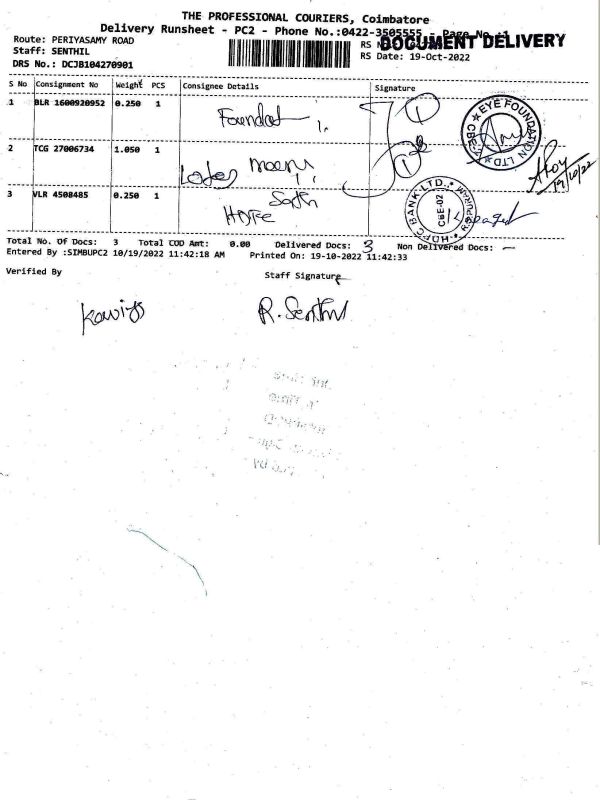 THE PROFESSIONAL COURIERS, Coimbatore
Delivery Runsheet - PC2 - Phone No.:0422-3505555 - Page No.:1
DOCUMENT DELIVERY
Route: PERIYASAMY ROAD
RS N
Staff: SENTHIL
RS Date: 19-Oct-2022
DRS No.: DCJB104270901
S No Consignment No Weight PCS Consignee Details Signature
1 BLR 1600920952 0.250 1 Foundat
EYE FOUNDATION LTD
2 TCG 27006734 1.050 1
19/10/22
3 VLR 4508485 0.250 1 HDFC
HDFC BANK LTD. R.S.PURAM
CBE-02
Total No. Of Docs: 3 Total COD Amt: 0.00 Delivered Docs: 3 Non Delivered Docs: —
Entered By :SIMBUPC2 10/19/2022 11:42:18 AM Printed On: 19-10-2022 11:42:33
Verified By Staff Signature
R. Senthil